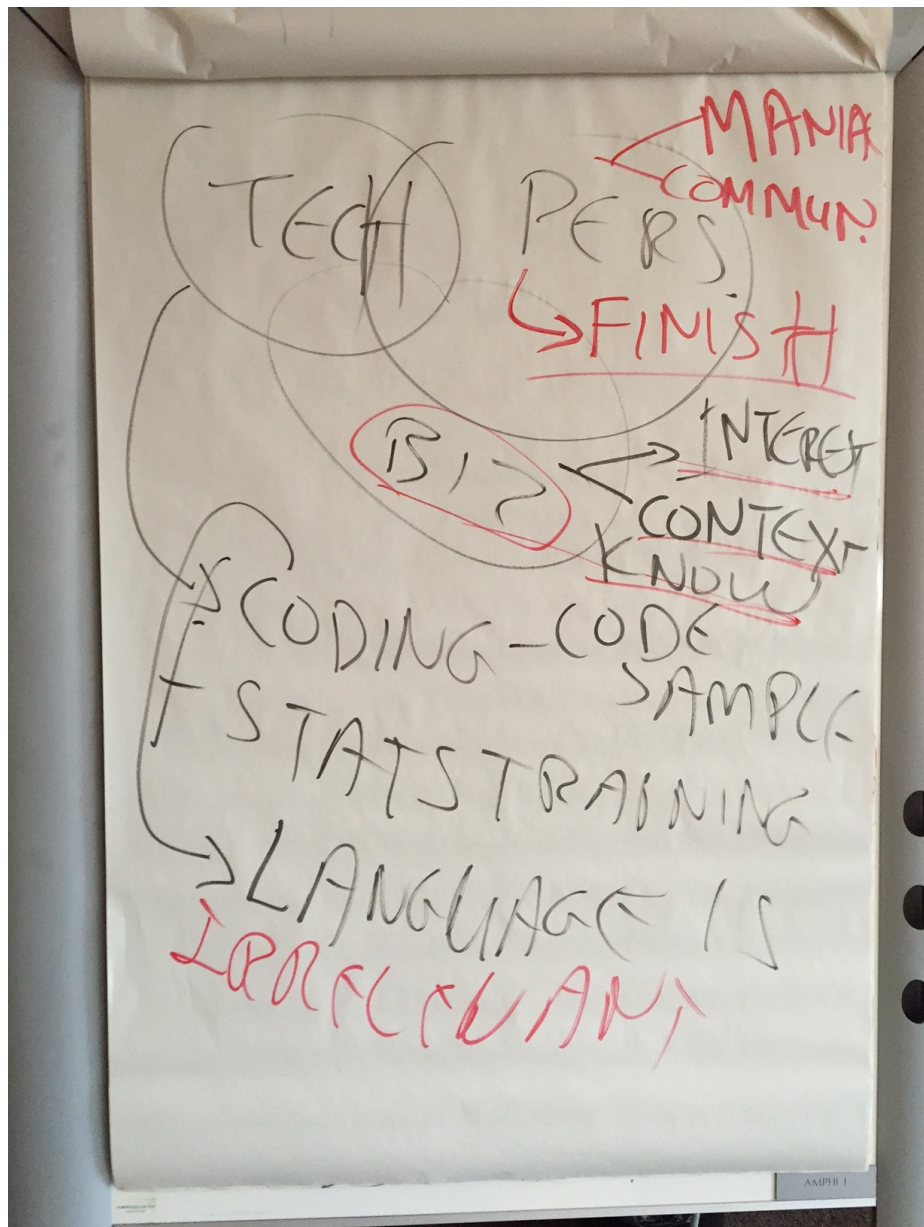 MANIA
COMMUN.
TECH PERS.
FINISH
BIZ
INTEREST
CONTEXT
KNOW
CODING - CODE
SAMPLE
+ STATS TRAINING
LANGUAGE IS
IRRELEVANT
AMPHI 1